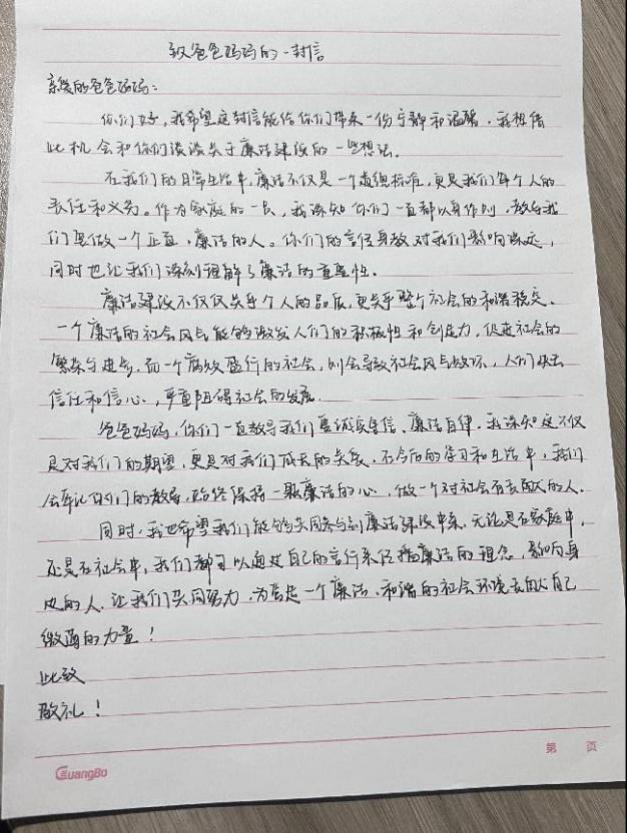 致爸爸妈妈的一封信
亲爱的爸爸妈妈：
你们好，我希望这封信能给你们带来一份宁静和温馨，我想借
此机会和你们谈谈关于廉洁建设的一些想法。
在我们的日常生活中，廉洁不仅是一个道德标准，更是我们每个人的
责任和义务。作为家庭的一员，我深知你们一直都以身作则，教会我
们要做一个正直、廉洁的人。你们的言传身教对我们影响深远，
同时也让我们深刻理解了廉洁的重要性。
廉洁建设不仅仅关乎个人的品质，更关乎整个社会的和谐稳定。
一个廉洁的社会风气能够激发人们的积极性和创造力，促进社会的
繁荣与进步，而一个腐败盛行的社会，则会导致社会风气败坏，人们失去
信任和信心，严重阻碍社会的发展。
爸爸妈妈，你们一直教导我们要诚实守信、廉洁自律。我深知这不仅
是对我们的期望，更是对我们成长的关爱，在今后的学习和生活中，我们
会牢记你们的教导，始终保持一颗廉洁的心，做一个对社会有贡献的人。
同时，我也希望我们能够共同参与到廉洁建设中来，无论是在家庭中，
还是在社会中，我们都可以通过自己的言行来传播廉洁的理念，影响身
边的人，让我们共同努力，为营造一个廉洁、和谐的社会环境贡献自己
微薄的力量！
此致
敬礼！
第 页
GuangBo